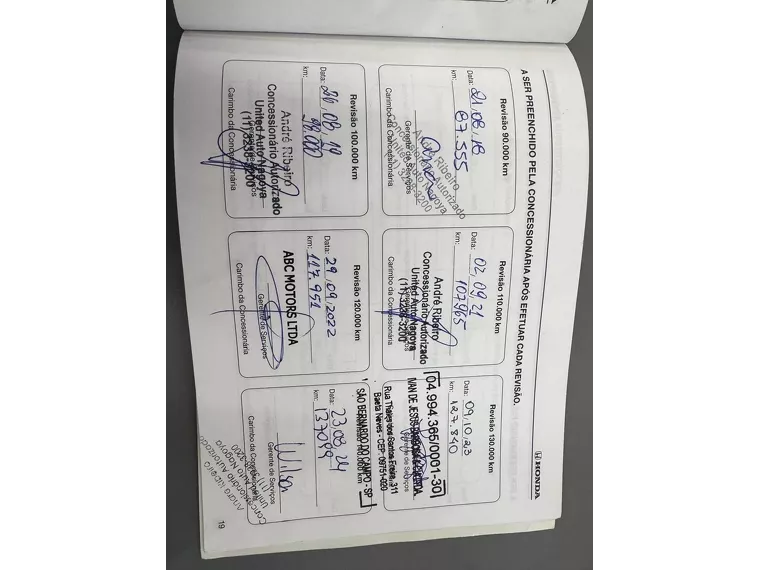 HONDA
A SER PREENCHIDO PELA CONCESSIONÁRIA APÓS EFETUAR CADA REVISÃO.
Revisão 90.000 km
Data: 21,08,18
km: 87.555
André Ribeiro
Concessionário Autorizado
United Auto Nagoya
(11) 3238-3200
Gerente de Serviços
Carimbo da Concessionária
Revisão 100.000 km
Data: 26,08,19
km: 98.000
André Ribeiro
Concessionário Autorizado
United Auto Nagoya
(11) 3238-3200
Carimbo da Concessionária
Revisão 110.000 km
Data: 02,09,21
km: 107.965
André Ribeiro
Concessionário Autorizado
United Auto Nagoya
(11) 3238-3200
Carimbo da Concessionária
Revisão 120.000 km
Data: 29,09,2022
km: 117.951
ABC MOTORS LTDA
Gerente de Serviços
Carimbo da Concessionária
Revisão 130.000 km
Data: 09,10,23
km: 127.840
04.994.365/0001-30
IVAN DE JESUS
Gerente de Serviços
Rua Thales dos Santos Freire, 311
Baeta Neves - CEP: 09751-020
SÃO BERNARDO DO CAMPO - SP
Data: 23,08,24
km: 137099
Wilson
Gerente de Serviços
Carimbo da Concessionária
André Ribeiro
Concessionário Autorizado
United Auto Nagoya
19